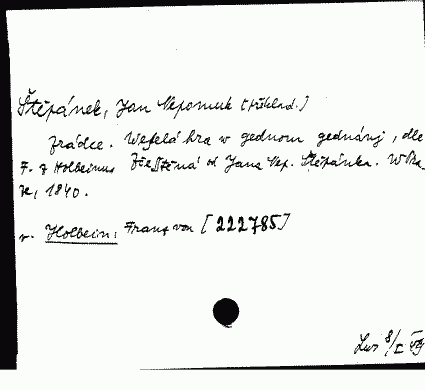 Štěpánek, Jan Nepomuk [překlad.]
Zrádce. Weselá hra w gednom gednánj, dle
F. z Holbeinus zčesstěná od Jana Nep. Štěpánka. W Pra-
ze, 1840.
v. Holbein, Franz von [222785]